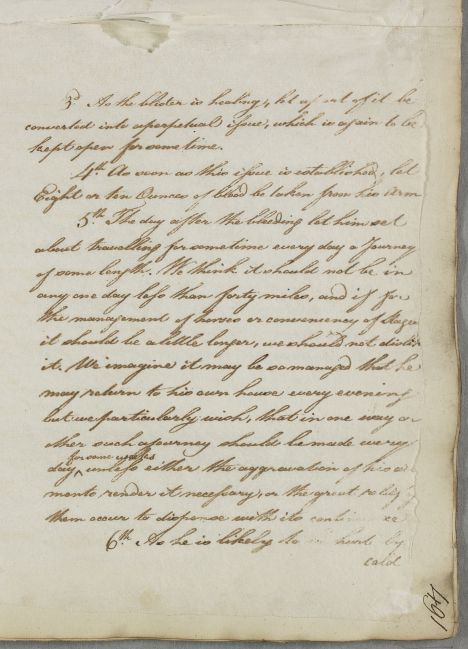 3d. As the blister is healing, let a part of it be
converted into a perpetual issue, which is again to be
kept open for some time.
4th As soon as this issue is established, let
Eight or ten Ounces of blood be taken from his Arm
5th. The day after the bleeding let him set
about travelling for some time every day a Journey
of some length. We think it should not be in
any one day less than forty miles, and if for
the management of horses or conveniency of Stages
it should be a little longer, we should not dislike
it. We imagine it may be so managed that he
may return to his own house every evening
but we particularly wish, that in one way or
other such a journey should be made every
for some weeks
day, unless either the aggravation of his
ments render it necessary, or the great relief of
them occur to dispense with its
6th. As he is likely to hurt by
cold
164